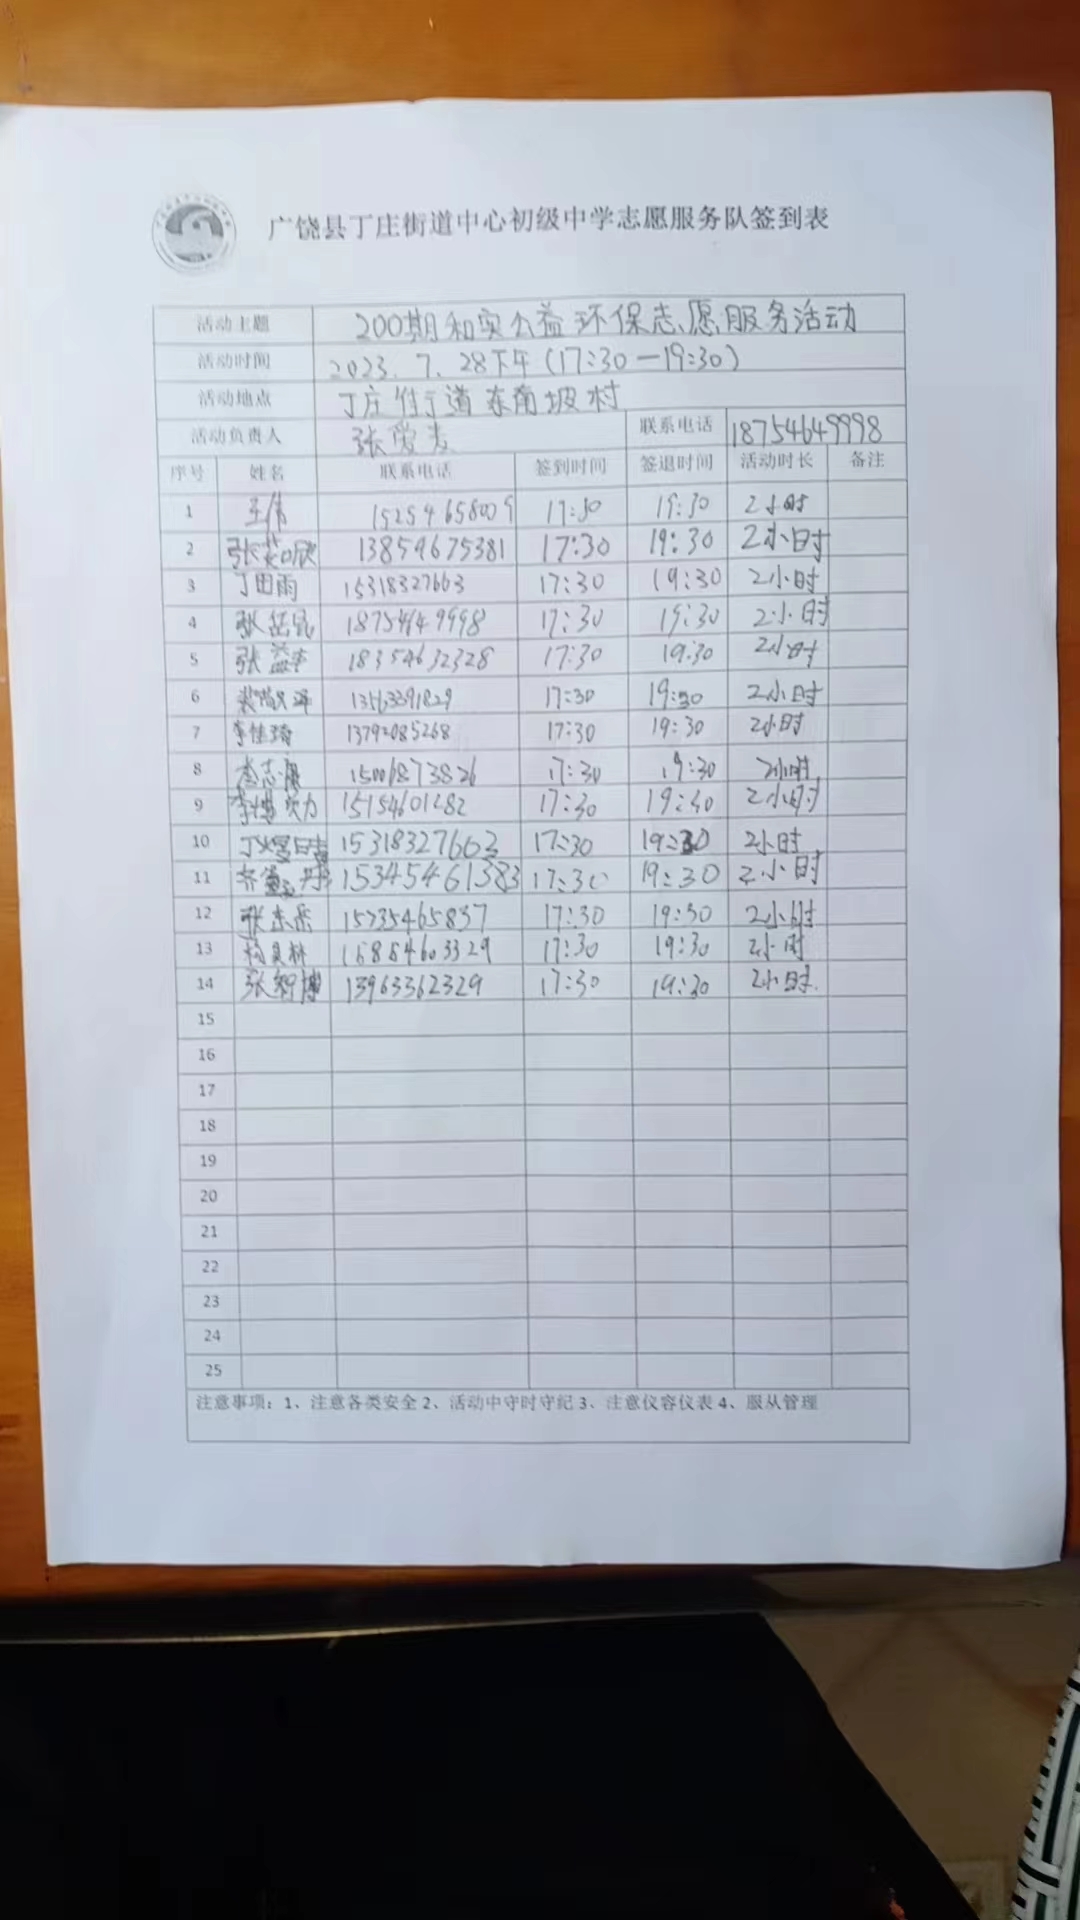 广饶县丁庄街道中心初级中学志愿服务队签到表
活动主题 200期和实公益环保志愿服务活动
活动时间 2023.7.28下午(17:30—19:30)
活动地点 丁庄街道东南坡村
活动负责人 张爱 联系电话 18754649998
序号 姓名 联系电话 签到时间 签退时间 活动时长 备注
1 王伟 15254658009 17:30 19:30 2小时
2 张 欣 13854675381 17:30 19:30 2小时
3 丁田雨 15318327663 17:30 19:30 2小时
4 张 17:30 19:30 2小时
5 张益 18354632328 17:30 19:30 2小时
6 13563391829 17:30 19:30 2小时
7 李佳琦 13792085268 17:30 19:30 2小时
8 李志 15006873826 17:30 19:30 2小时
9 李 17:30 19:30 2小时
10 丁 15318327663 17:30 19:30 2小时
11 齐 15345461383 17:30 19:30 2小时
12 张 岳 17:30 19:30 2小时
13 林 17:30 19:30 2小时
14 张智博 13963362329 17:30 19:30 2小时
15
16
17
18
19
20
21
22
23
24
25
注意事项：1、注意各类安全 2、活动中守时守纪 3、注意仪容仪表 4、服从管理